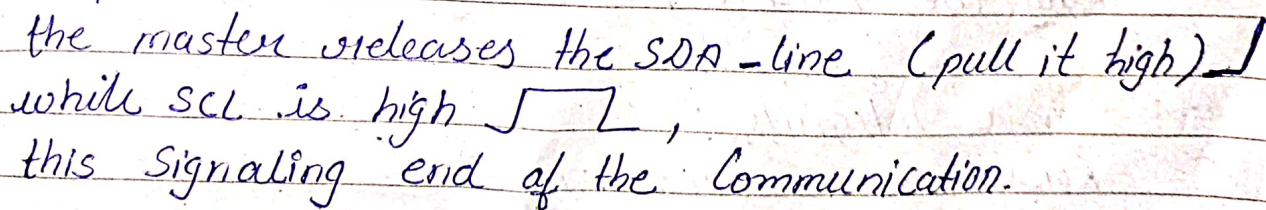 the master releases the SDA-line (pull it high)
while SCL is high ,
this Signaling end of the Communication.